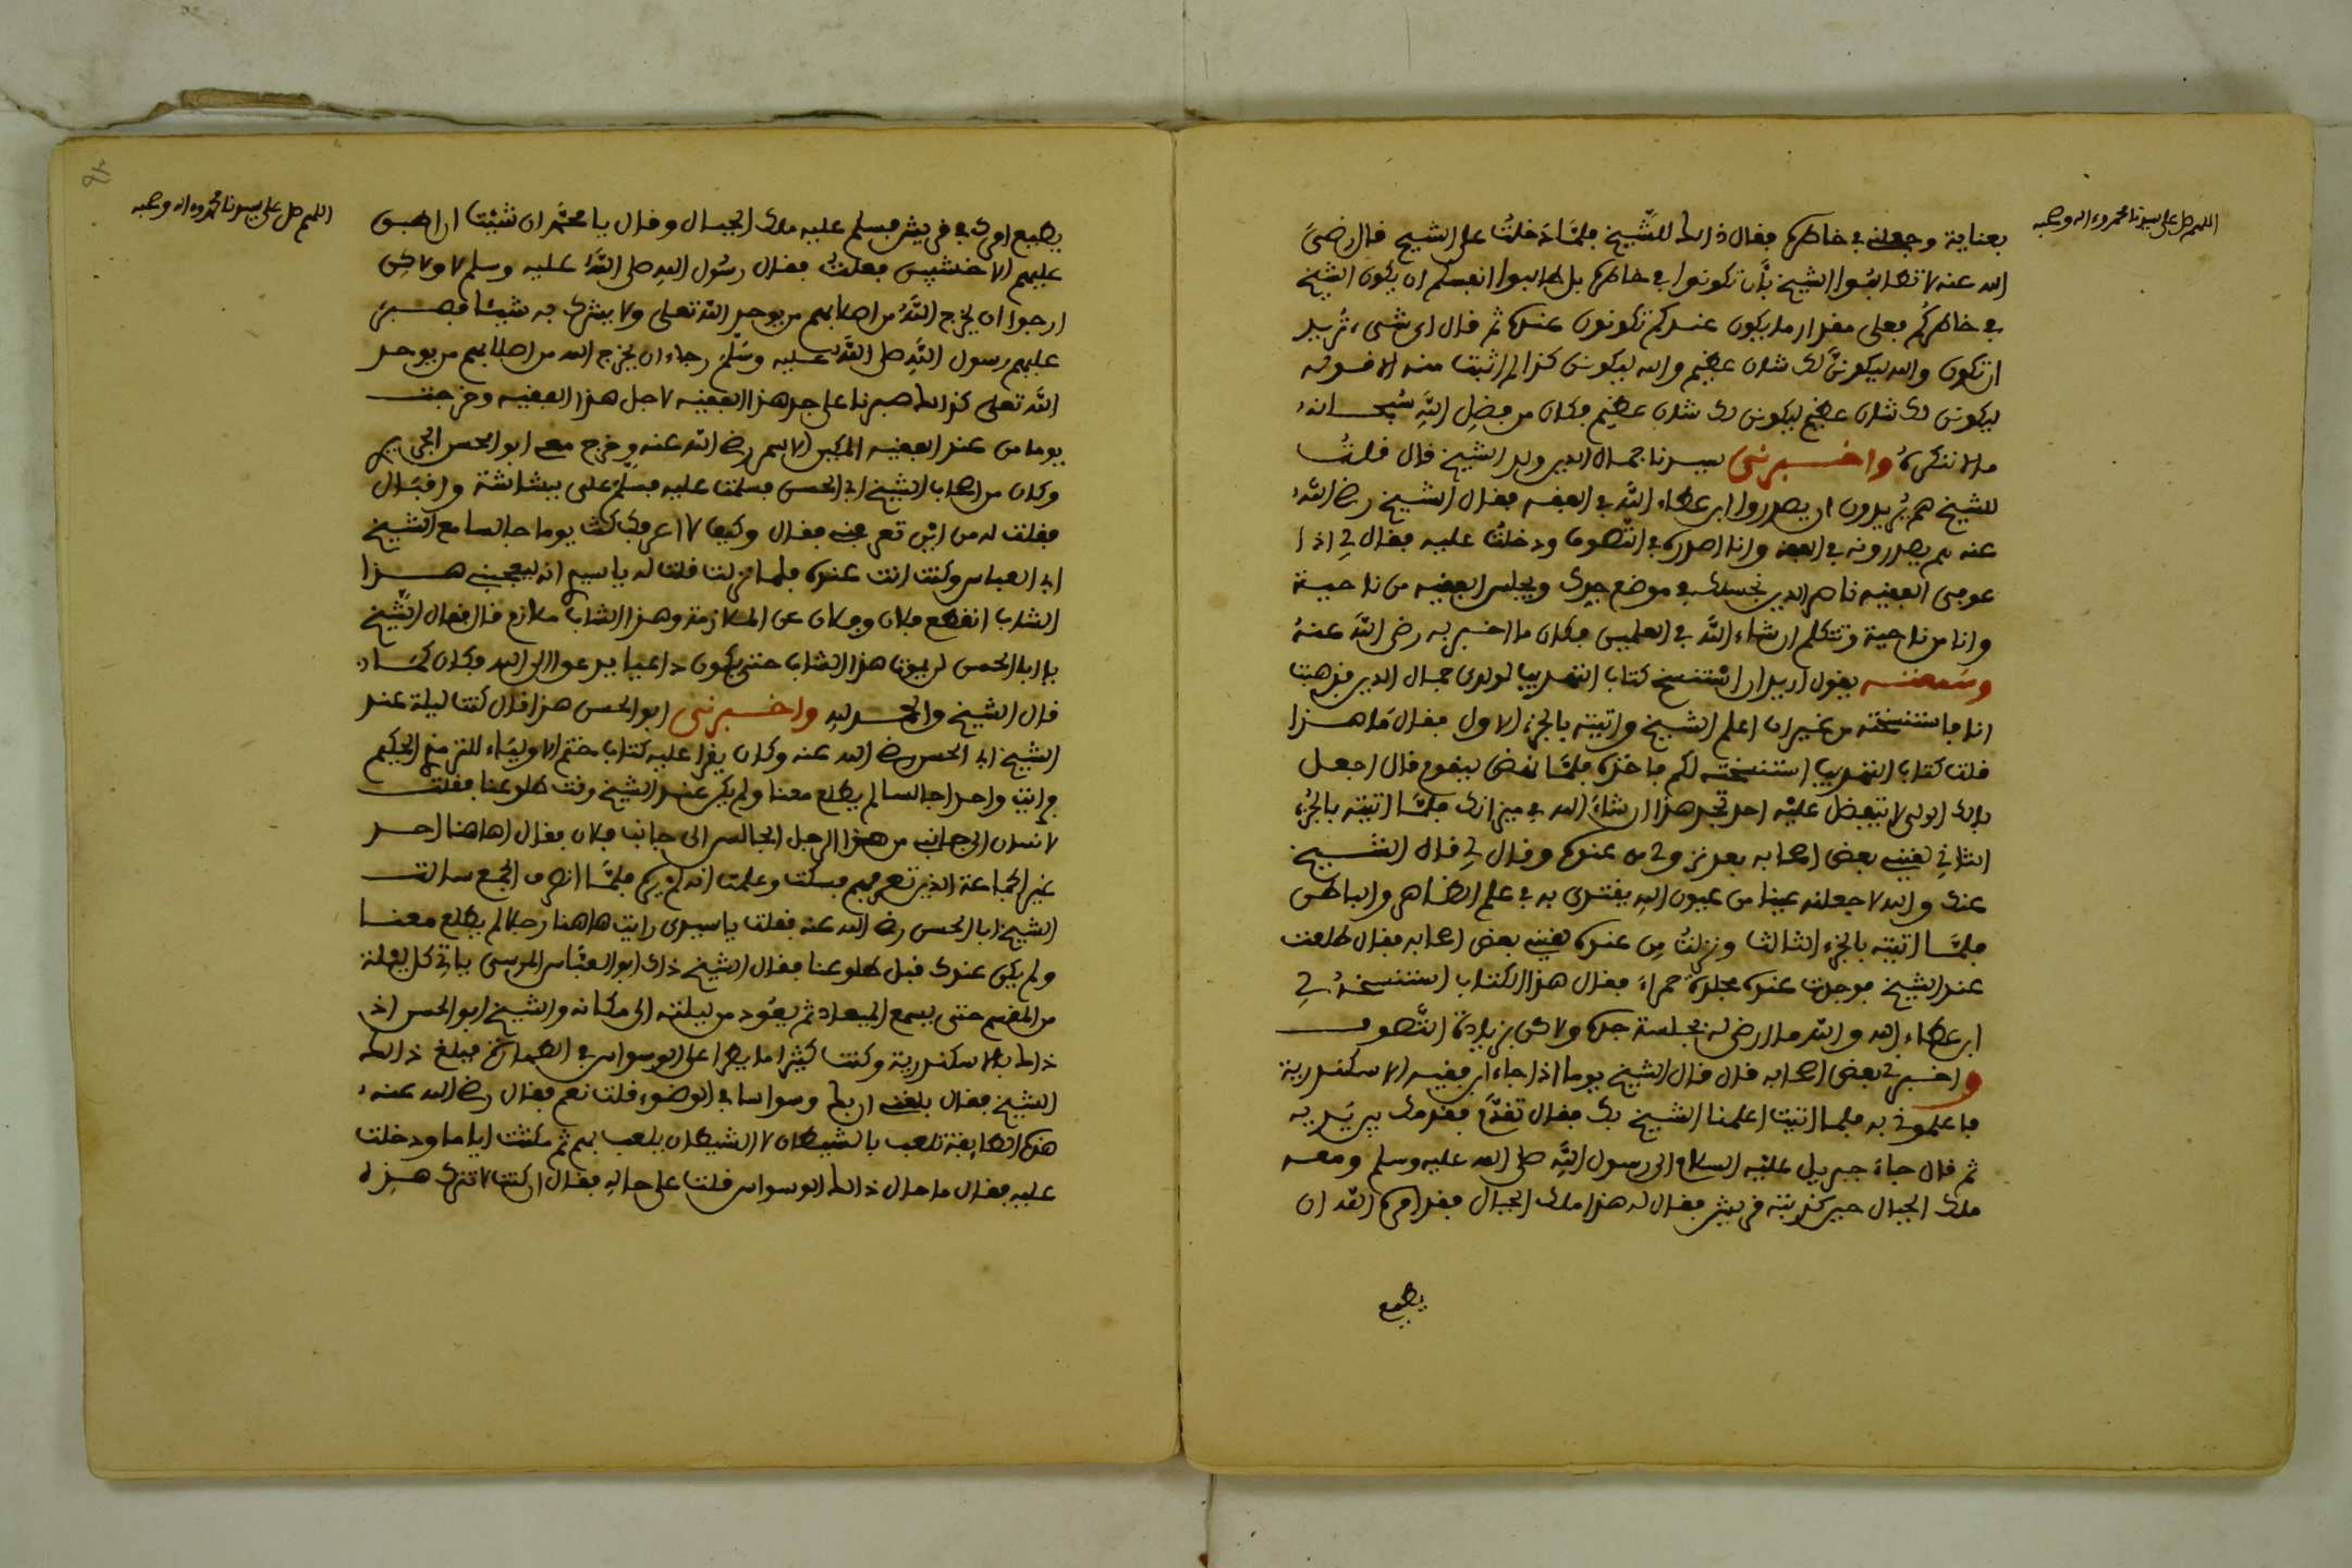 اللهم صل على سيدنا محمد وءاله وصحبه
بعناية وجعلني في خاطره فقال ذالك للشيخ فلمّا دَخلتُ على الشيخ قال رضيَ
الله عنه لا تطالبُوا الشيخ بأن تكونوا في خاطره بل طالبوا انفسكم ان يكون الشيخ
في خاطركُم فعلى مقدار ما يكون عندكم تكونون عنده ثم قال اى شىء تُريد
ان تكون والله ليكوننّ لك شان عظيم والله ليكونن كذا لم اثبت منه الا قوله
ليكونن لك شان عظيم ليكونن لك شان عظيم فكان من فضلِ اللَّهِ سُبحانه
ما لا ننكرهُ واخبرنى سيدنا جمال الدين ولد الشيخ قال قلتُ
للشيخ هم يُريدون ان يصدروا ابن عطاء اللَّه في الفقه فقال الشيخ رضي اللَّه
عنه هم يصدرونه في الفقه وانا اصدره في التّصوف ودخلتُ عليه فقال لي اذا
عوفى الفقيه ناصر الدين نجلسك في موضع جدك ويجلس الفقيه من ناحية
وانا من ناحية وتتكلم ان شاء اللَّه في العلمين فكان ما اخبر به رضى اللَّه عنهُ
وسَمعتـه يقول اريد ان استنسخ كتاب التهذيب لولدى جمال الدين فذهبت
انا فاستنسخته من غير ان اعلم الشيخ واتيته بالجزء الاول فقال مَا هـذا
قلت كتاب التهذيب استنسخته لكم فاخذه فلمّا نهض ليقوم قال اجعل
بالك الولى لا يتفضل عليْه احد تجد هذا ان شاءَ الله في ميزانك فلمّا اتيته بالجُزء
الثاني لقيني بعض اصحابه بعد نزولى من عنده وقال لي قال الشـيخ
عنك والله لاجعلنه عينا من عيون اللهِ يقتدى به في علم الظاهر والباطن
فلمّا اتيته بالجزء الثالث ونزلتُ مِن عنده لقيني بعض اصحابه فقال طلعت
عند الشيخ فوجدت عنده مجلدة حمراءَ فقال هذا الكتاب استنسخهُ لي
ابن عطاء الله والله ما ارضى له بجلسة جده ولاكن بزيادة التَّصوف
واخبرنى بعض اصحابه قال قال الشيخ يوما اذا جاء ابن فقيه الاسكندرية
فاعلموني به فلما اتيت اعلمنا الشيخ بك فقال تقدَّم فقدمك بين يَديه
ثم قال جاءَ جبريل عليْه السلام الى رسول اللَّهِ صلى الله عليه وسلم ومعـه
ملك الجبال حين كذبته قريش فقال له هذا ملك الجبال فقد امره اللّه ان
يطيع
اللهم صل على سيدنا محمد وءاله وصحبه
يطيع امرك في قريش فسلم عليه ملك الجبال وقال يا محمّد ان شئت ان اطبق
عليهم الاخشبين فعلتُ فقال رسُول اللهِ صلى اللَّهُ عليه وسلم لا ولاكن
ارجوا ان يخرج اللَّهُ من اصلابهم من يوحد اللّه تعلى ولا يشرك به شيئا فصـبر
عليهم رسول اللَّهِ صلى اللَّه عليه وسَلَّم رجاء ان يخرج الله من اصلابهم من يوحد
اللَّه تعلى كذالك صبرنا على جد هذا الفقيه لاجل هذا الفقيه وخرجت
يوما من عند الفقيه المكين الاسمر رضى اللّه عنه وخرج معه ابو الحسن الجريري
وكان من اصحاب الشيخ ابى الحسن فسلمت عليه فسلّم على ببشاشة واقبَال
فقلت له من اين تعرفني فقال وكيف لا اعرفك كنت يوما جالسا مع الشيخ
ابى العباس وكنت انت عنده فلما نزلت قلت له يا سيدى انه ليعجبني هـذا
الشاب انقطع فلان وفلان عن الملازمة وهذا الشاب ملازم قال فقال الشّيخ
يا ابا الحسن لن يموت هذا الشاب حتى يكون داعيا يدعوا الى الله فكان كمَا
قال الشيخ والحمـد لله واخـبرنى ابو الحسن هذا قال كنت ليلة عند
الشيخ ابى الحسن رضى الله عنه وكان يقرا عليه كتاب ختم الاوليَاء للترمذي الحكيم
فرايت واحدا جالسا لم يطلع معنا ولم يكن عند الشيخ وقت طلوعنا فقلت
لانسان الى جانبي من هذا الرجل الجالس الى جانب فلان فقال ما هاهنا احـد
غير الجماعة الذين تعرفهم فسكتُ وعلمت انه لم يره فلمَّا انصرف الجمع سالت
الشيخ ابا الحسن رضى الله عنه فقلت يا سيدى رايت هاهنا رجلا لم يطلع معنـا
ولم يكن عندك قبل طلوعنا فقال الشيخ ذاك ابو العبّاس المرسى ياتى كل ليلة
من المقسم حتى يسمع الميعاد ثم يعُود من ليلته الى مكانه والشيخ ابو الحسن اذ
ذاك بالاسكندرية وكنت كثيرا ما يطرا على الوسواس في الطهارة فبلغ ذالك
الشيخ فقال بلغني ان بك وسواسا في الوضوء قلت نعم فقال رضى الله عنه
هذه الطايفة تلعب بالشيطان لا الشيطان يلعب بهم ثم مكثت اياما ودخلت
عليه فقال ما حال ذالك الوسواس قلت على حاله فقال ان كنت لا تترك هـذه